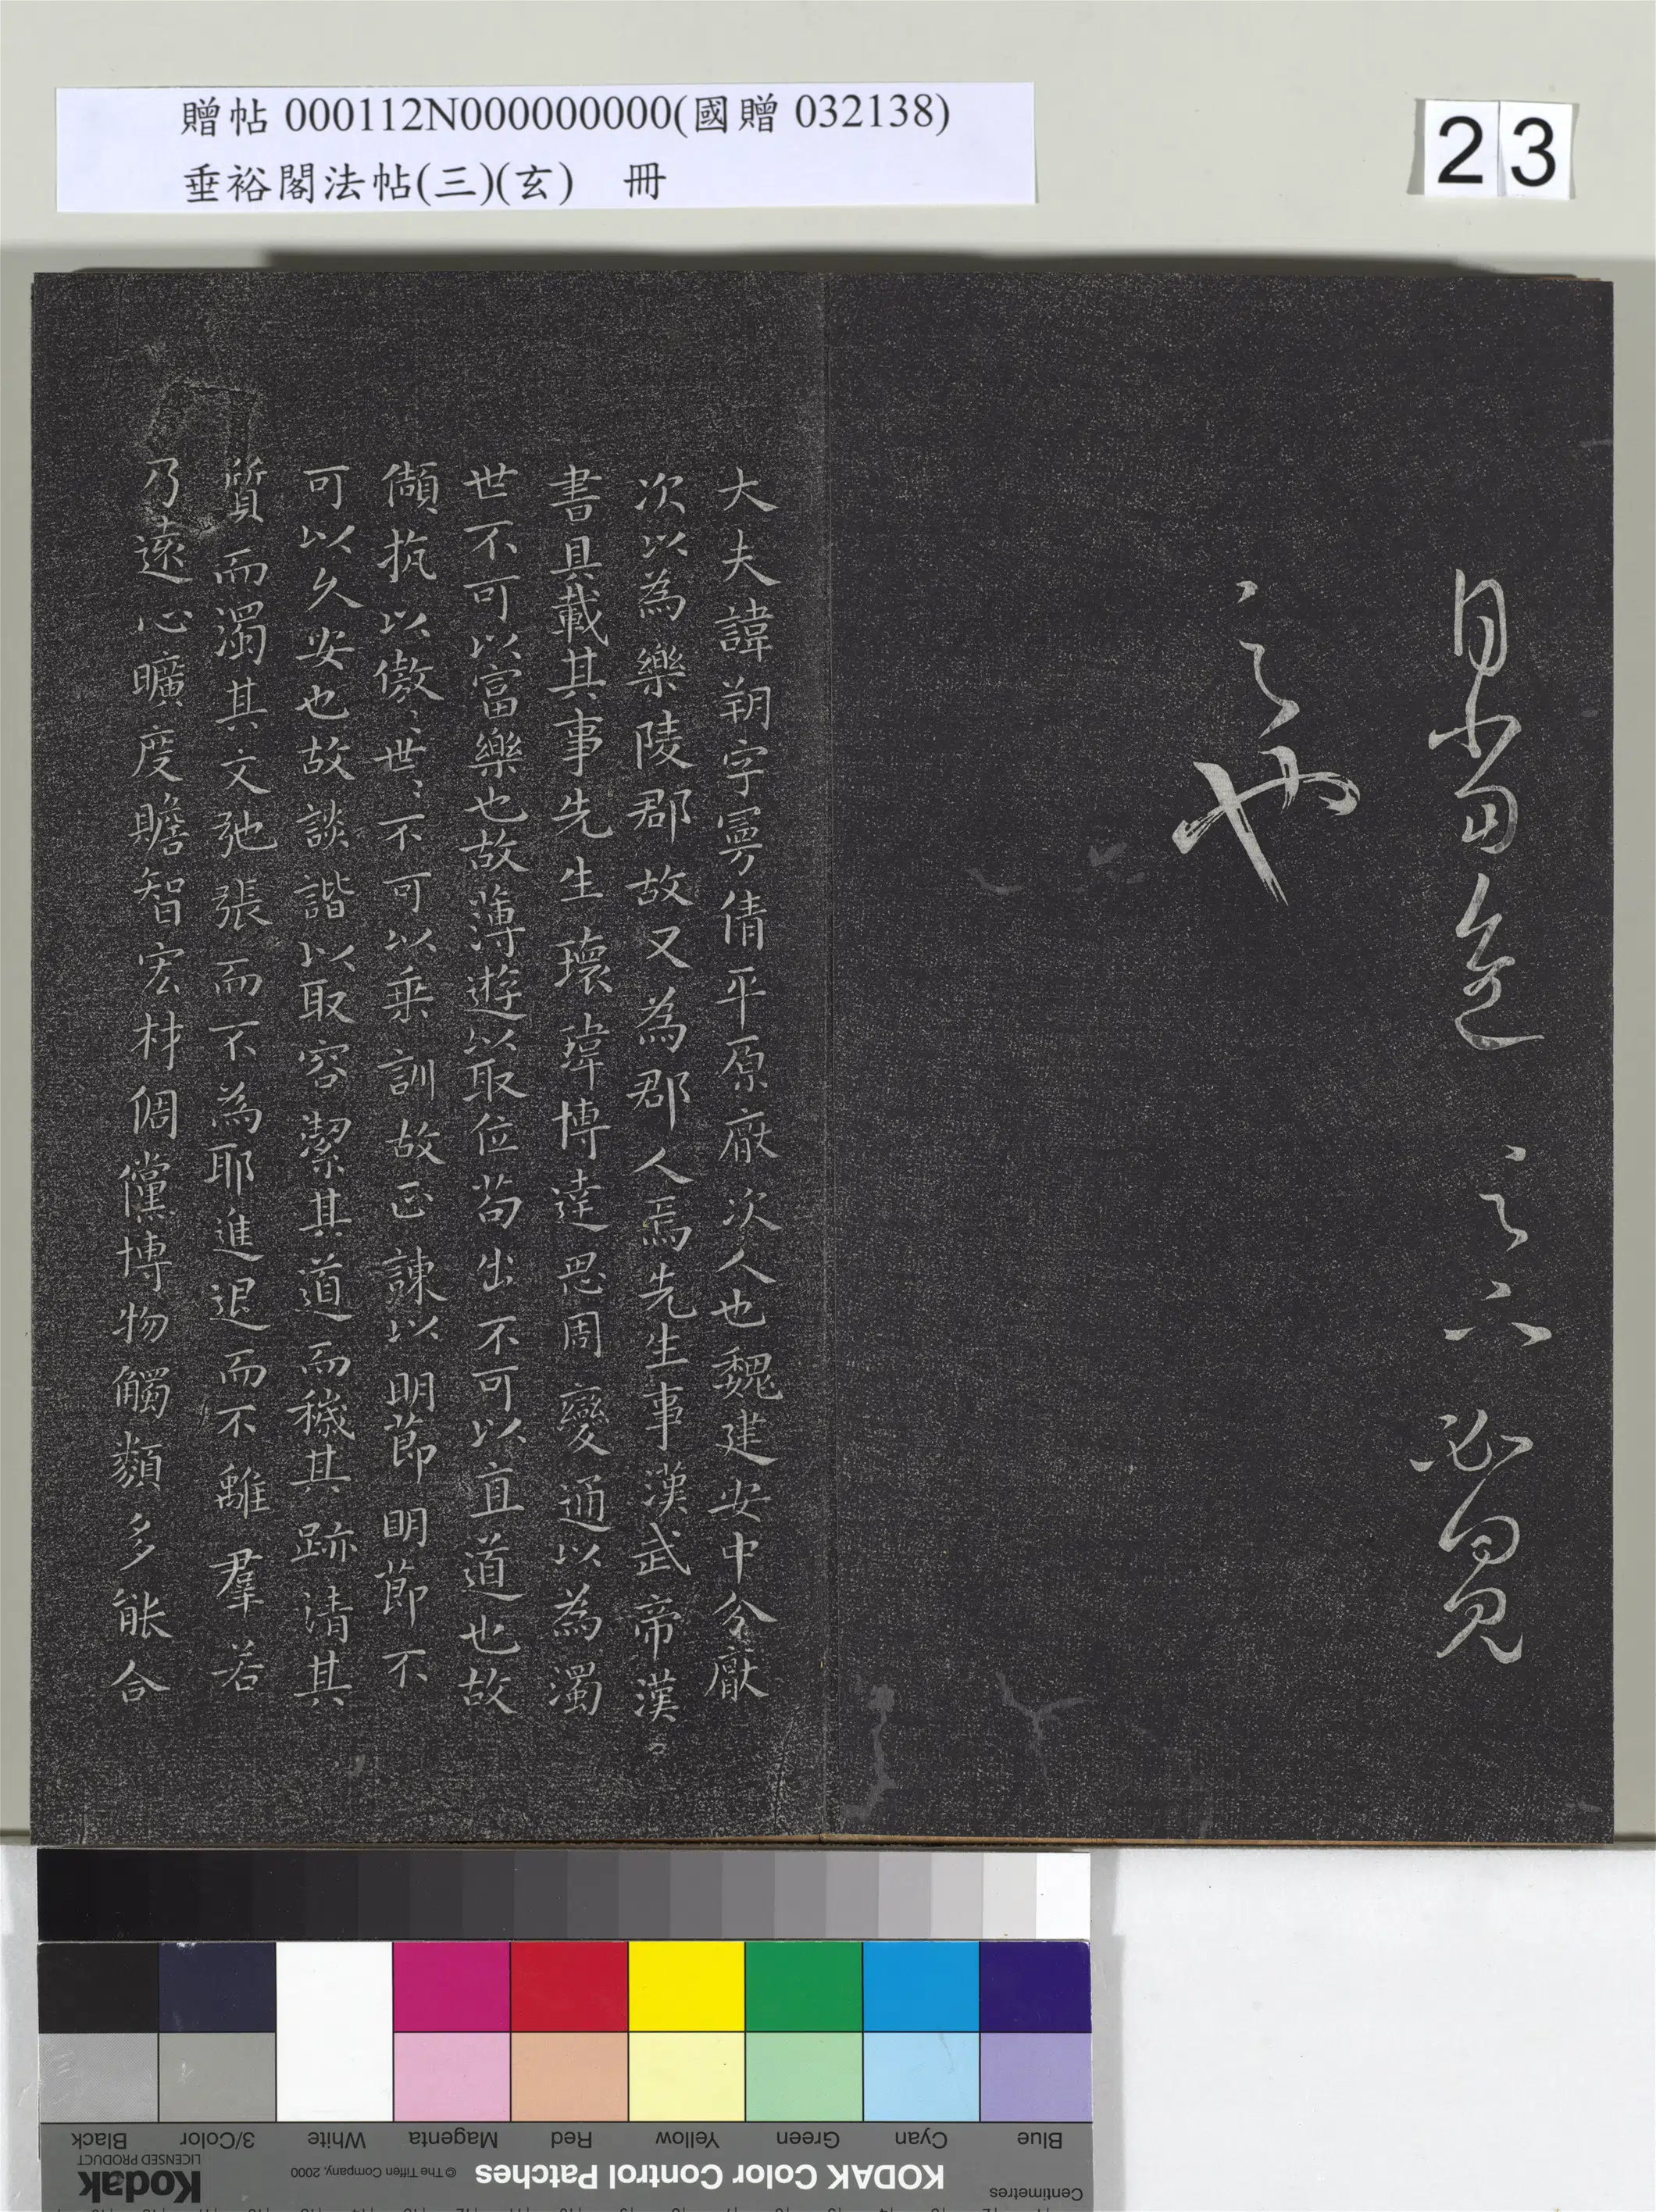 贈帖 000112N000000000(國贈 032138)
垂裕閣法帖(三)(玄) 冊
23
之也
大夫諱朔字曼倩平原厭次人也魏建安中分厭
次以為樂陵郡故又為郡人焉先生事漢武帝漢
書具載其事先生瓌瑋博達思周變通以為濁
世不可以富樂也故薄遊以取位苟出不可以直道也故
傾抗以傲〻世〻不可以垂訓故正諫以明莭明莭不
可以久安也故談諧以取容潔其道而穢其跡清其
質而濁其文弛張而不為耶進退而不離羣若
乃遠心曠度贍智宏材倜儻博物觸類多能合
Black
3/Color
White
Magenta
Red
Yellow
Green
Cyan
Blue
Kodak
LICENSED PRODUCT
© The Tiffen Company, 2000
KODAK Color Control Patches
Centimetres